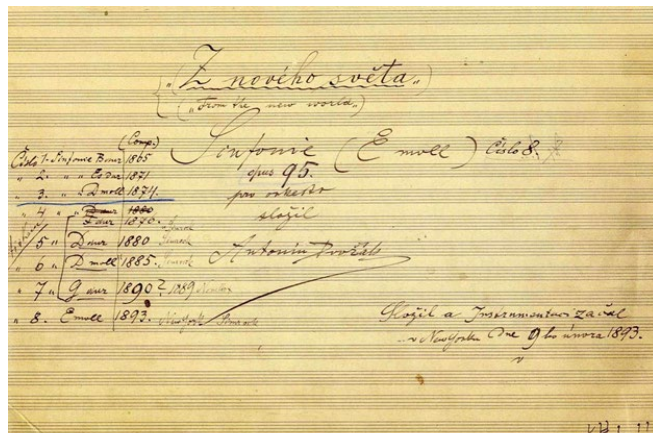 „Z nového světa„
(„From the new world„)
Sinfonie (E moll) Číslo 8.
opus 95.
pro orkestr
složil
Antonín Dvořák
(Comp.)
Číslo 1. Sinfonie B dur 1865
„ 2. „ Es dur 1871
„ 3. „ D moll 1874.
„ 4 „ D dur 1880
F dur 1876.
5 „ D dur 1880
„ 6 „ D moll 1885.
„ 7 „ G dur 1890? 1889
„ 8. E moll 1893. New York Simrock
Složil a Instrumentaci začal
v New Yorku Dne 9ho února 1893.